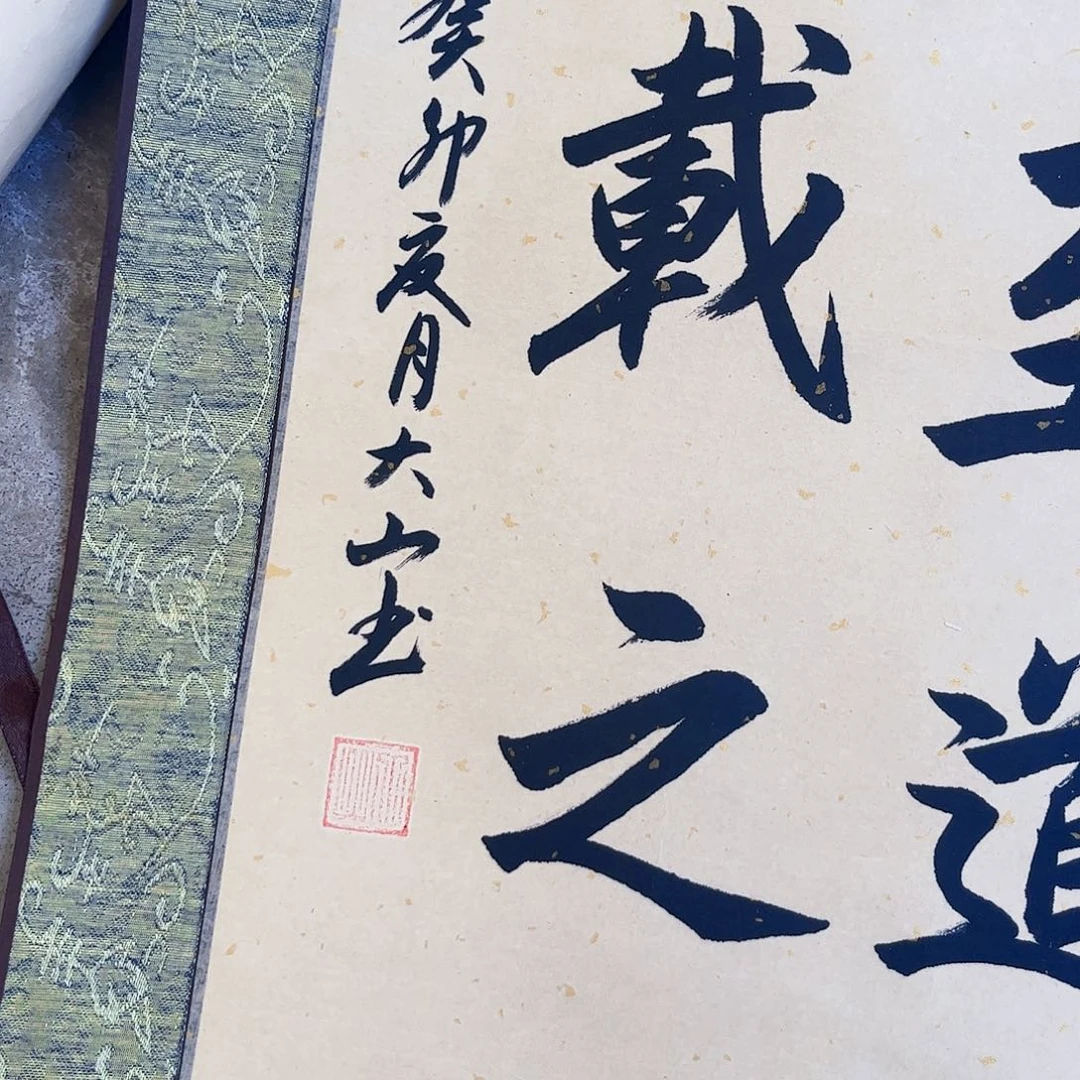 道
載之
癸卯夏月大山书